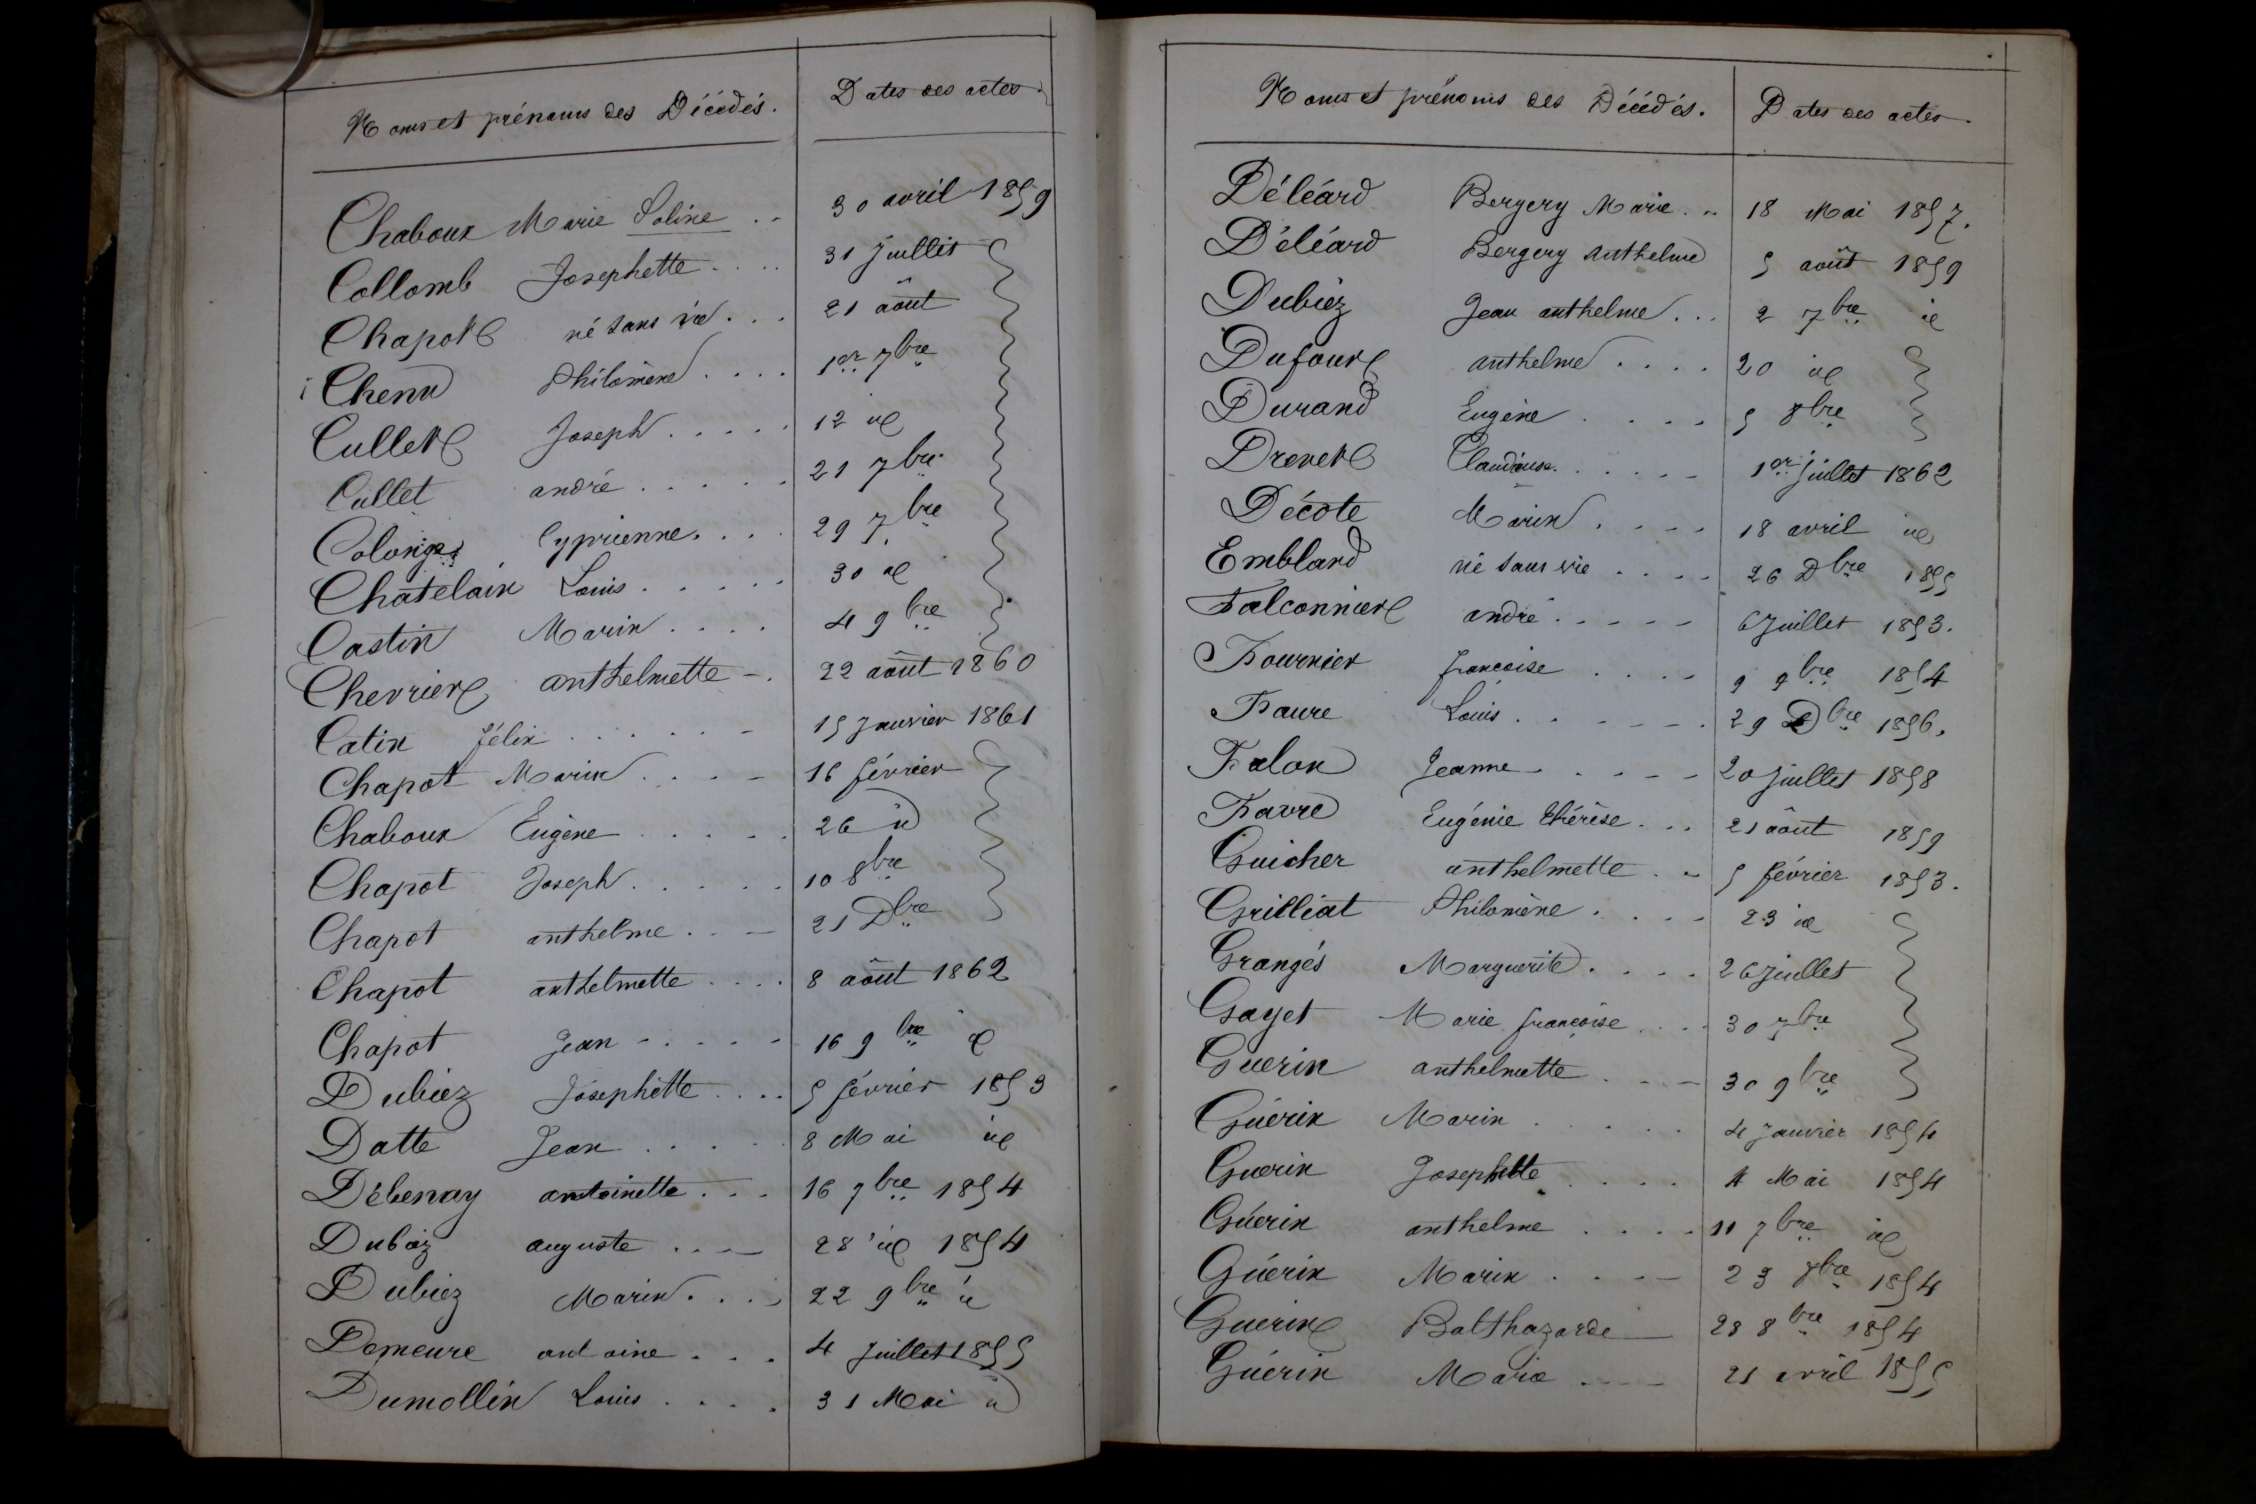 Noms et prénoms des Décédés. Dates des actes.
Chaboux Marie Soline .. 30 avril 1859
Collomb Josephette .... 31 Juillet
Chapot né sans vie ... 21 août
Chenu Philomène .... 1er 7bre
Cullet Joseph ..... 12 id
Cullet andré ..... 21 7bre
Colonges Cyprienne .... 29 7bre
Chatelain Louis ..... 30 id
Castin Marin .... 4 9bre
Chevrier anthelmette -. 22 août 1860
Catin félix ...... 15 Janvier 1861
Chapot Marin .... 16 février
Chaboux Eugène ..... 26 id
Chapot Joseph ..... 10 8bre
Chapot anthelme .... 21 Dbre
Chapot anthelmette .... 8 août 1862
Chapot Jean ..... 16 9bre id
Dubiez Josephette .... 5 février 1853
Datte Jean ..... 8 Mai id
Débenay antoinette ... 16 7bre 1854
Duboz auguste .... 28 id 1854
Dubiez Marin .... 22 9bre id
Demeure antoine ... 4 Juillet 1855
Dumollin Louis .... 31 Mai id
Noms et prénoms des Décédés. Dates des actes.
Déléard Bergery Marie .. 18 Mai 1857.
Déléard Bergery Anthelme 5 août 1859
Dubiez Jean anthelme ... 2 7bre id
Dufour anthelme .... 20 id
Durand Eugène .... 5 8bre
Drevet Claudine ..... 1er Juillet 1862
Décote Marin .... 18 avril id
Emblard né sans vie .... 26 Dbre 1855
Falconnier andré ..... 6 Juillet 1853.
Fournier françoise .... 9 9bre 1854
Faure Louis ...... 29 Dbre 1856.
Falon Jeanne ..... 20 Juillet 1858
Favre Eugénie thérèse ... 21 août 1859
Guicher anthelmette .. 5 février 1853.
Grilliat Philomène .... 23 id
Grangés Marguerite .... 26 Juillet
Gayet Marie françoise .... 30 7bre
Guerin anthelmette .... 30 9bre
Guérin Marin ..... 4 Janvier 1854
Guerin Josephette .... 4 Mai 1854
Guérin anthelme .... 11 7bre id
Guérin Marin .... 23 7bre 1854
Guerin Balthazarde 28 8bre 1854
Guérin Marie .... 21 avril 1855